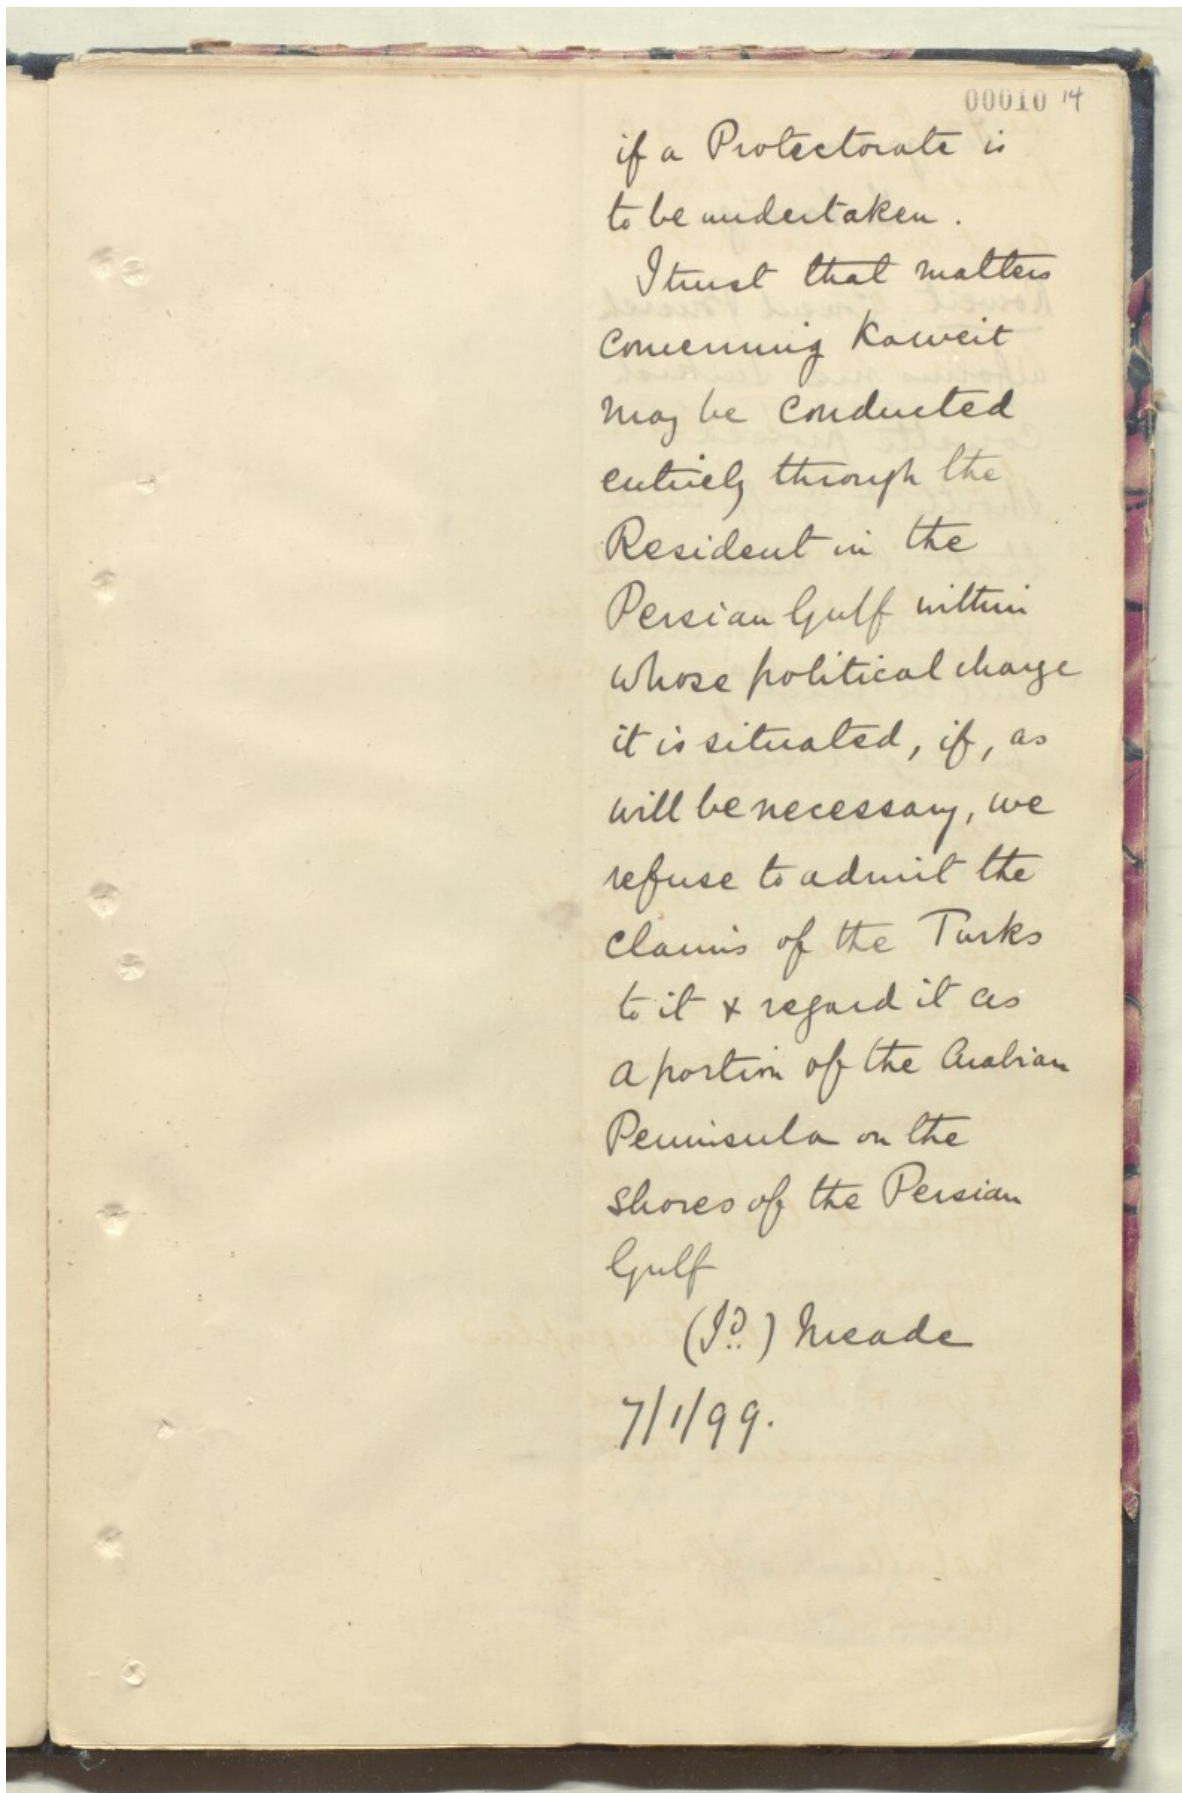 00010 14
if a Protectorate is
to be undertaken.
I trust that matters
concerning Koweit
may be conducted
entirely through the
Resident in the
Persian Gulf within
whose political charge
it is situated, if, as
will be necessary, we
refuse to admit the
claims of the Turks
to it & regard it as
a portion of the Arabian
Peninsula on the
shores of the Persian
Gulf
(Sd.) Meade
7/1/99.